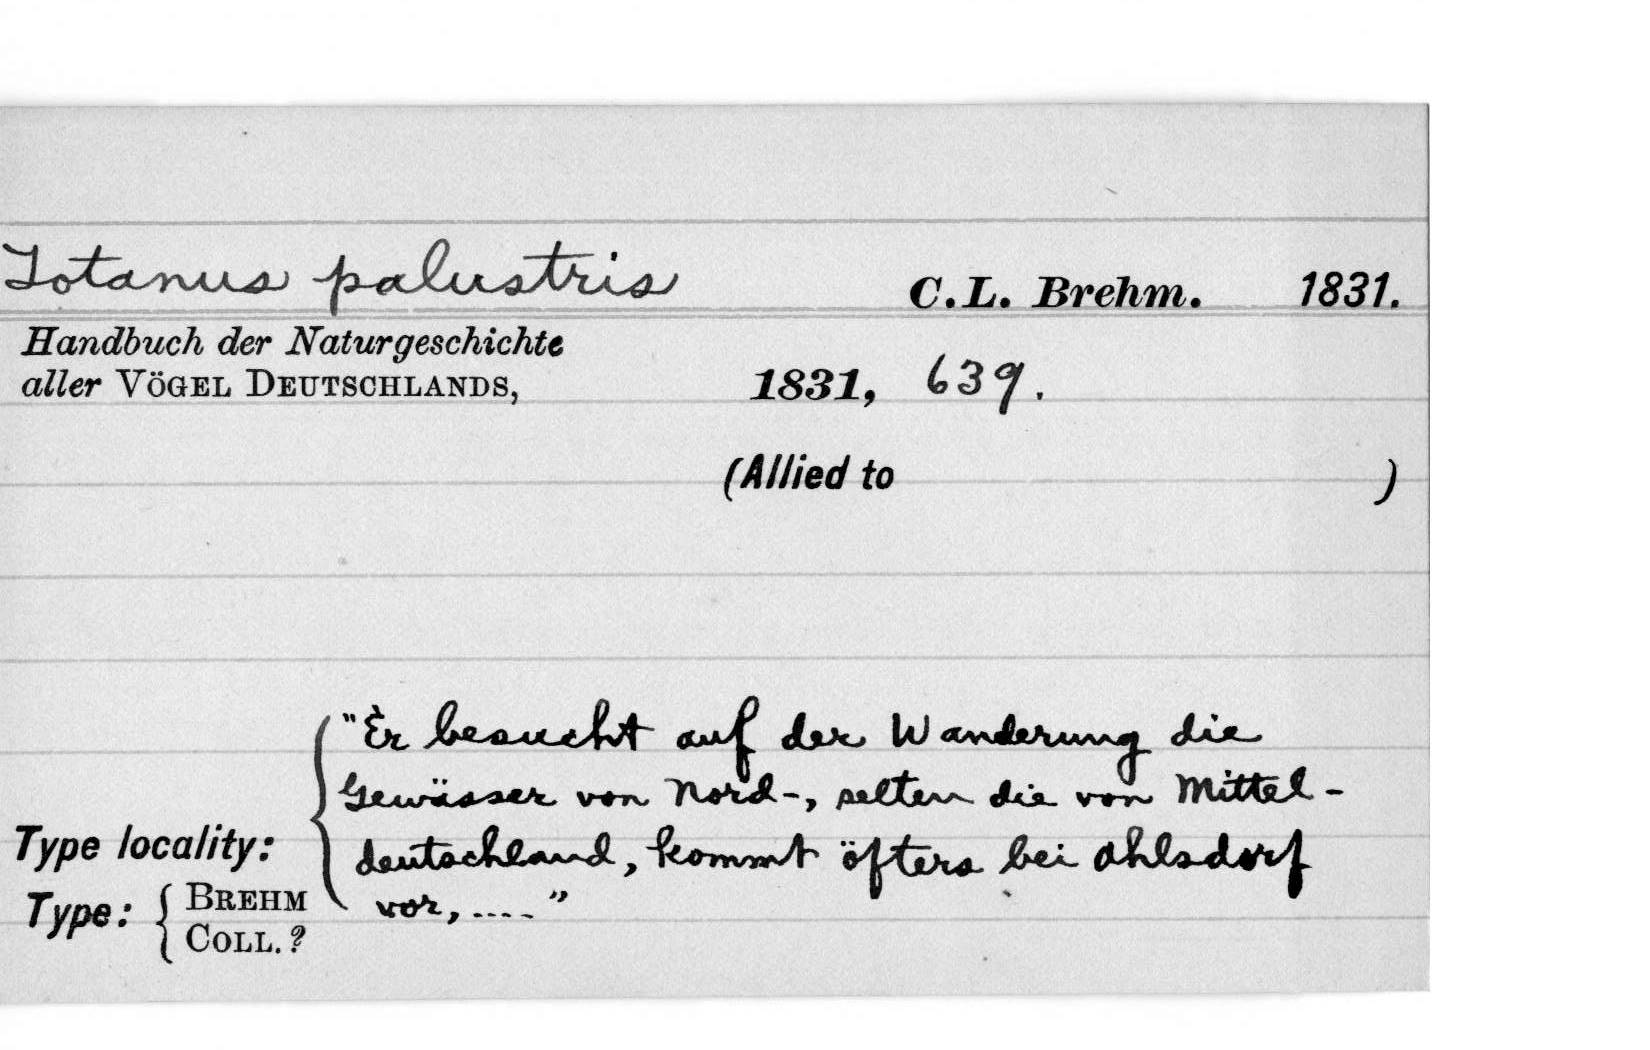 Totanus palustris C.L. Brehm. 1831.
Handbuch der Naturgeschichte
aller VÖGEL DEUTSCHLANDS, 1831, 639.
(Allied to )
"Er besucht auf der Wanderung die
Gewässer von Nord-, selten die von Mittel-
Type locality: deutschland, kommt öfters bei Ahlsdorf
Type: { BREHM vor, ...."
COLL.?